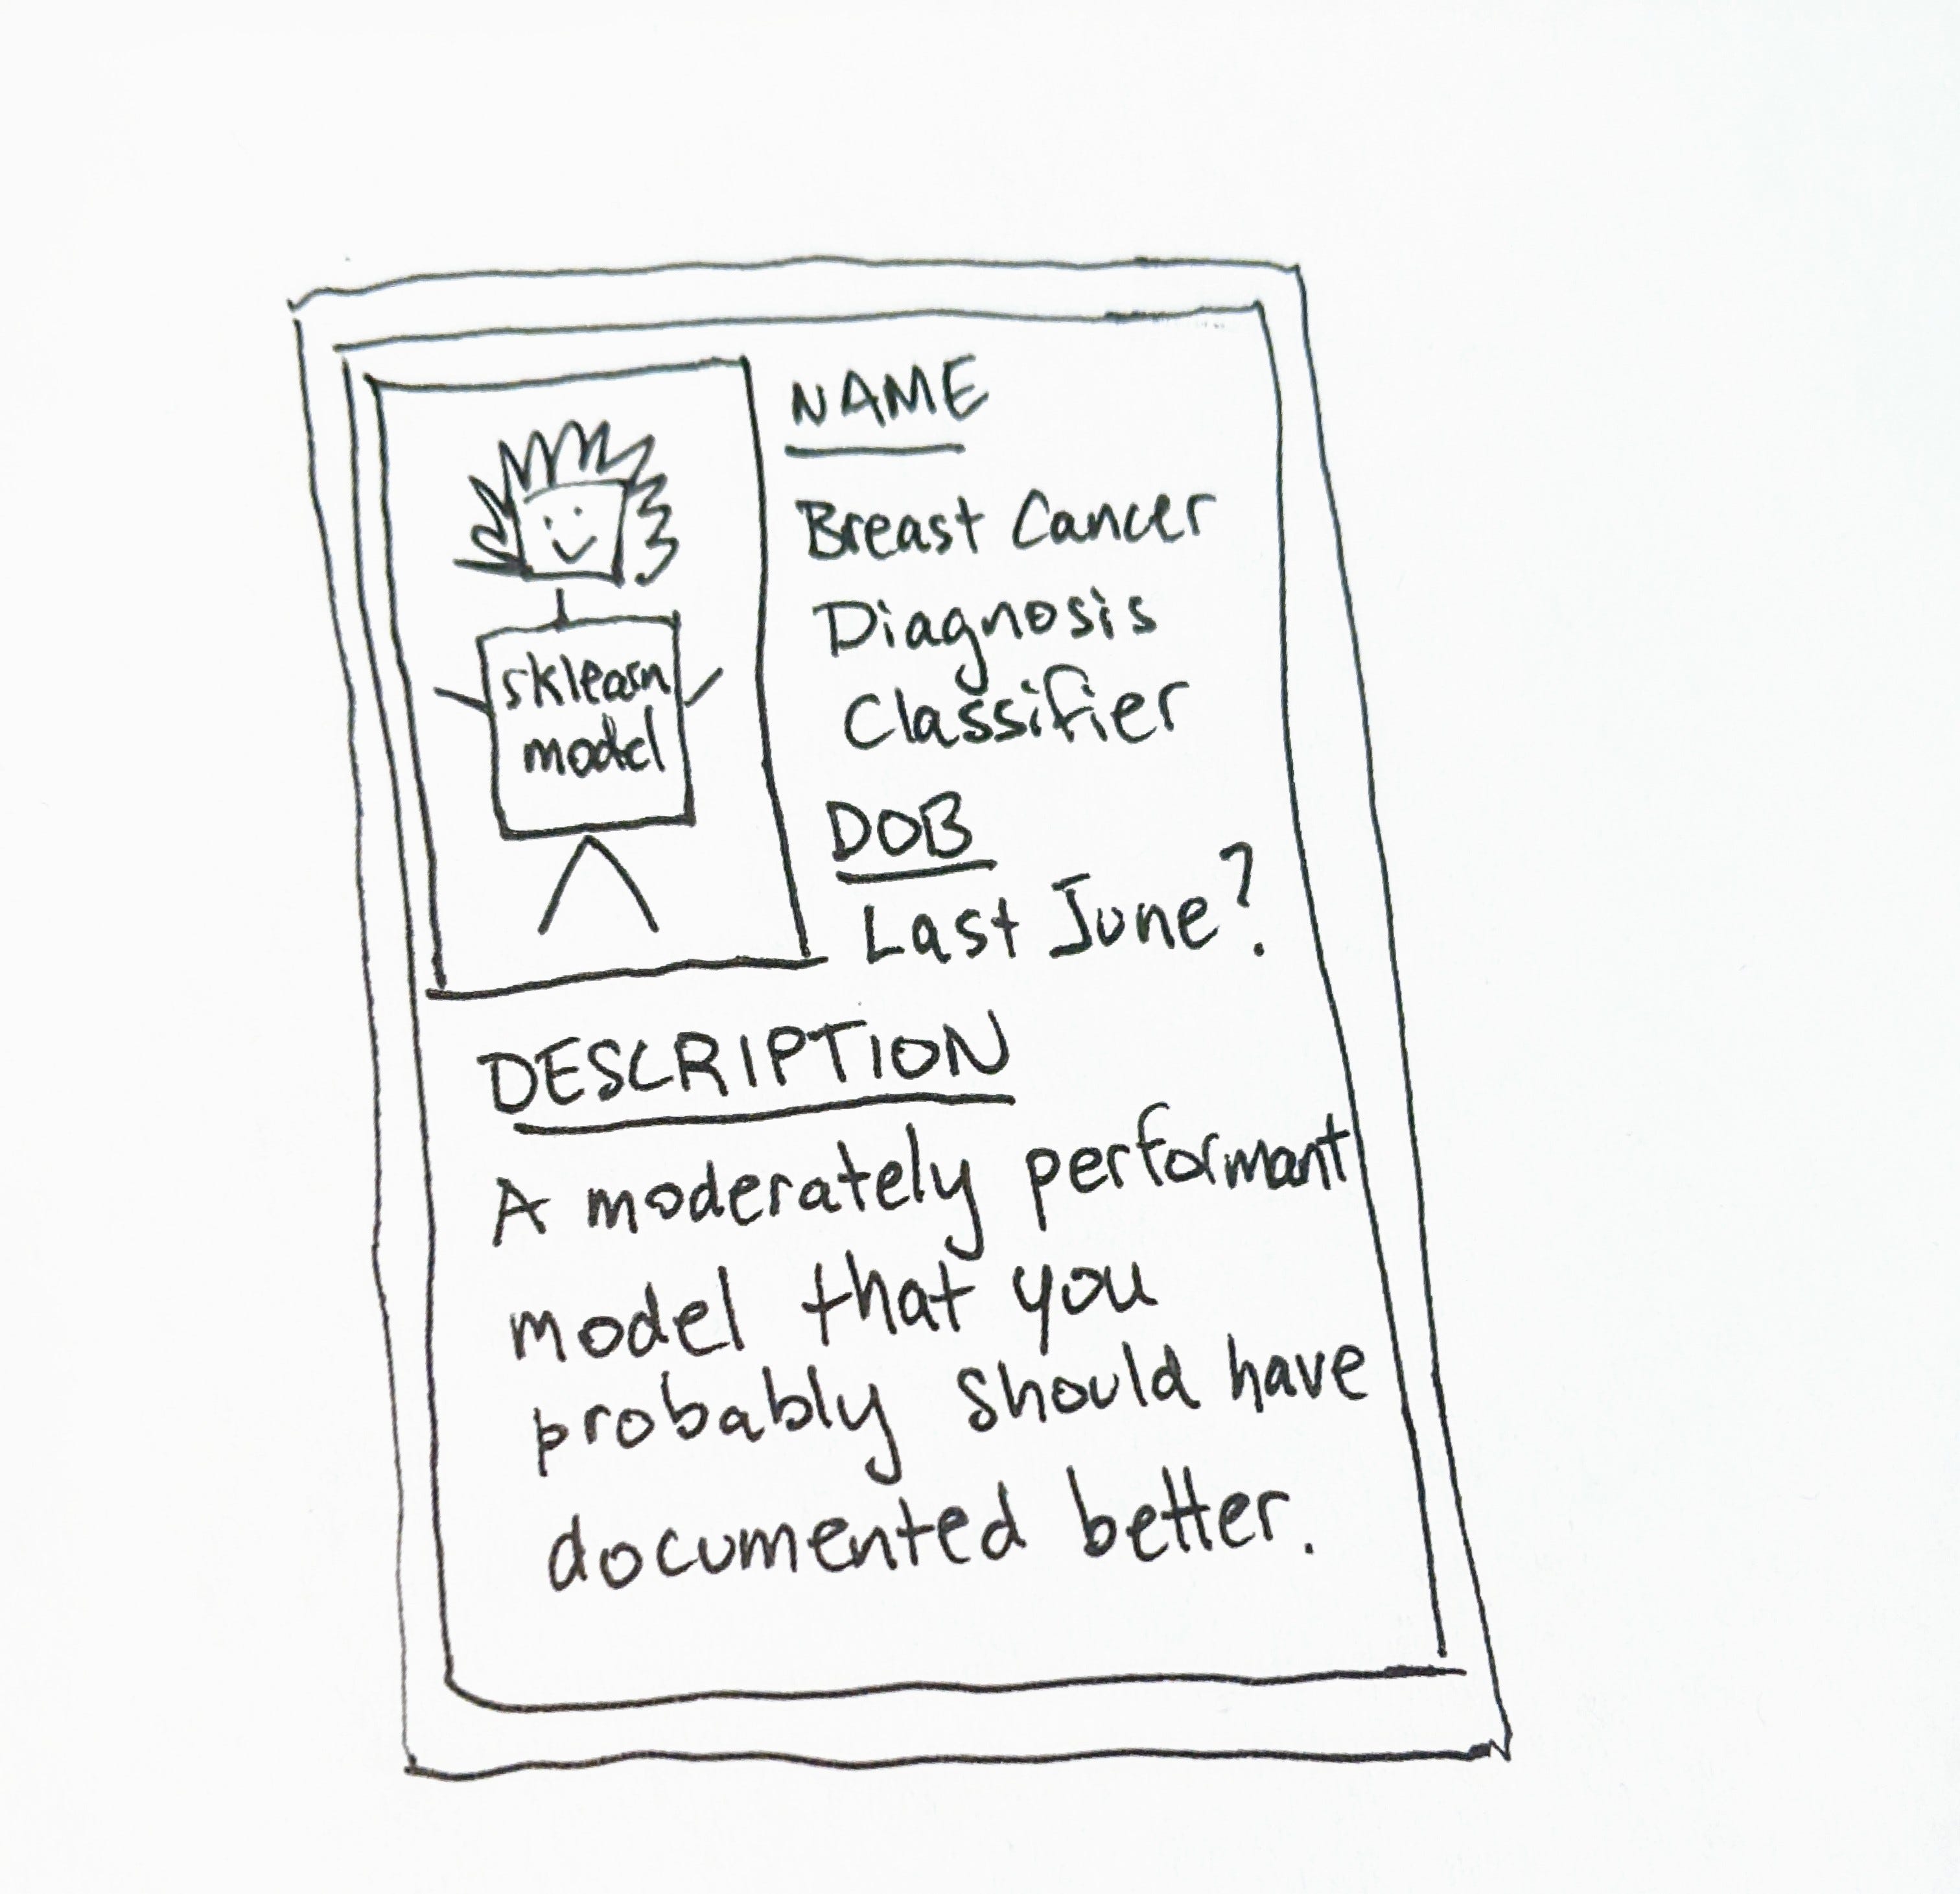 sklearn
model
NAME
Breast Cancer
Diagnosis
Classifier
DOB
Last June?
DESCRIPTION
A moderately performant
model that you
probably should have
documented better.